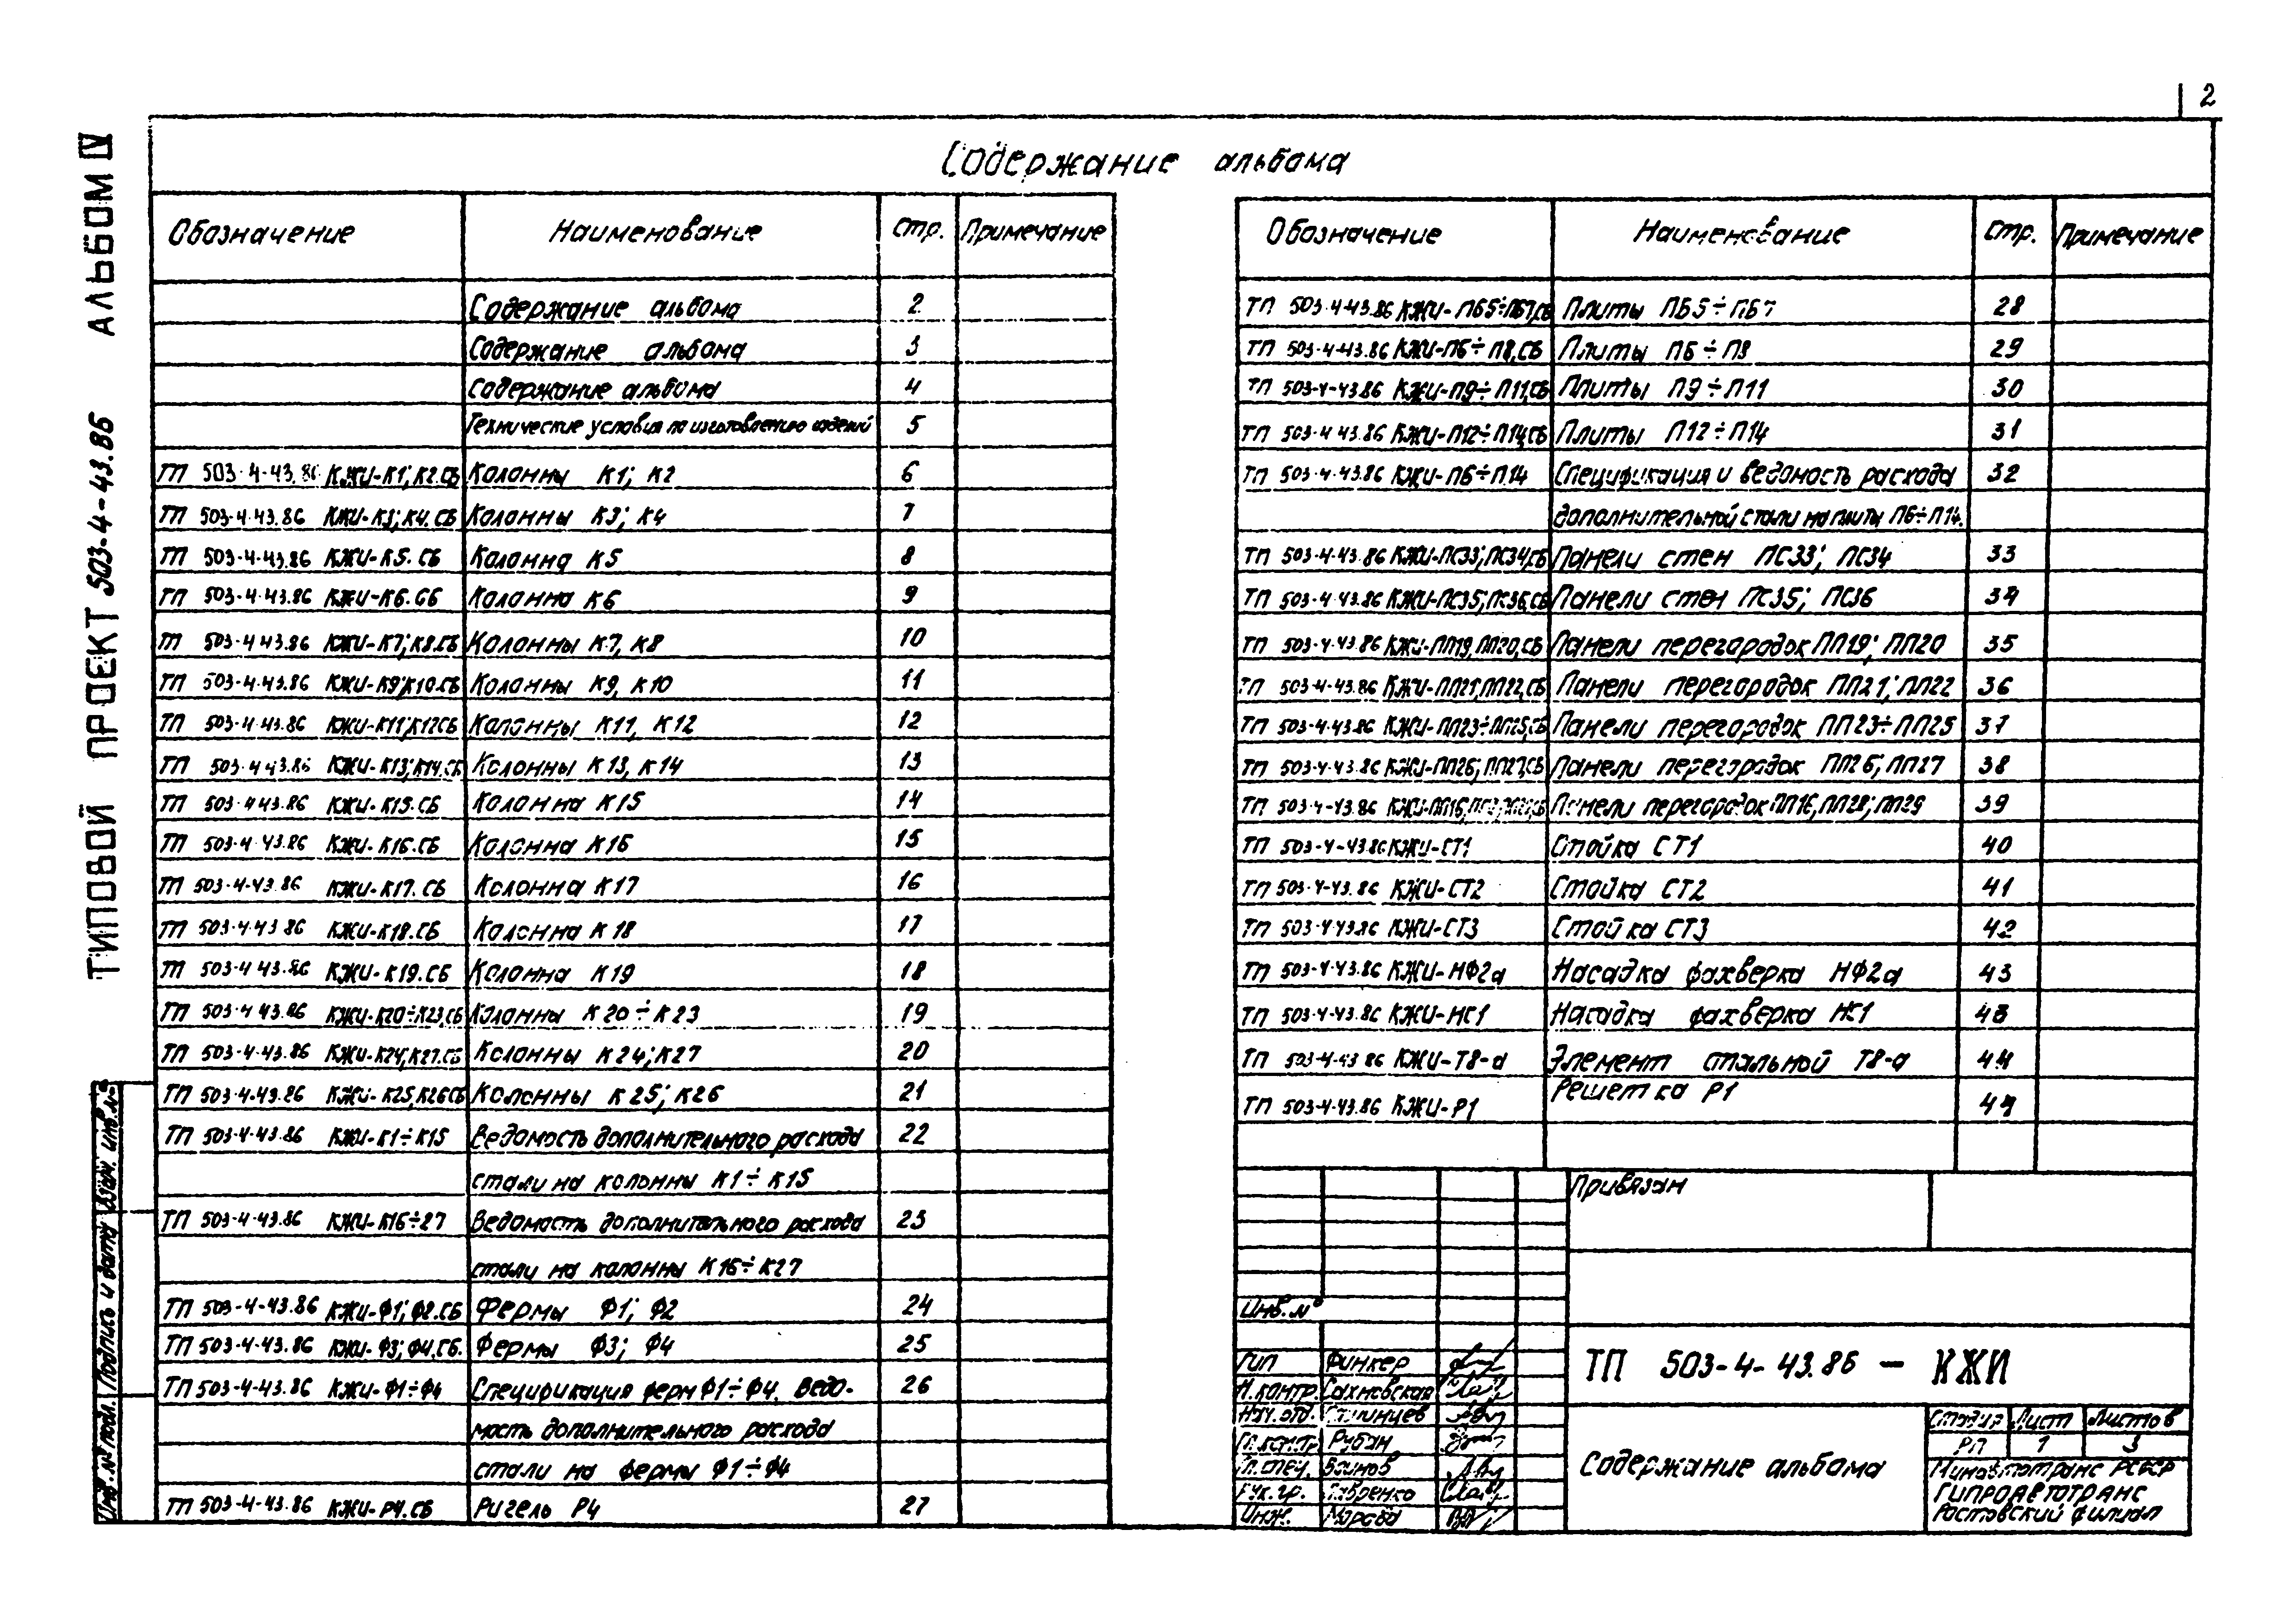 2
ТИПОВОЙ ПРОЕКТ 503-4-43.86 АЛЬБОМ IV
Содержание альбома
Обозначение Наименование Стр. Примечание
Содержание альбома 2
Содержание альбома 3
Содержание альбома 4
Технические условия по изготовлению изделий 5
ТП 503-4-43.86 КЖИ-К1; К2.СБ Колонны К1; К2 6
ТП 503-4-43.86 КЖИ-К3; К4.СБ Колонны К3; К4 7
ТП 503-4-43.86 КЖИ-К5.СБ Колонна К5 8
ТП 503-4-43.86 КЖИ-К6.СБ Колонна К6 9
ТП 503-4-43.86 КЖИ-К7; К8.СБ Колонны К7, К8 10
ТП 503-4-43.86 КЖИ-К9; К10.СБ Колонны К9, К10 11
ТП 503-4-43.86 КЖИ-К11; К12СБ Колонны К11, К12 12
ТП 503-4-43.86 КЖИ-К13; К14.СБ Колонны К13, К14 13
ТП 503-4-43.86 КЖИ-К15.СБ Колонна К15 14
ТП 503-4-43.86 КЖИ-К16.СБ Колонна К16 15
ТП 503-4-43.86 КЖИ-К17.СБ Колонна К17 16
ТП 503-4-43.86 КЖИ-К18.СБ Колонна К18 17
ТП 503-4-43.86 КЖИ-К19.СБ Колонна К19 18
ТП 503-4-43.86 КЖИ-К20÷К23,СБ Колонны К20÷К23 19
ТП 503-4-43.86 КЖИ-К24; К27.СБ Колонны К24; К27 20
ТП 503-4-43.86 КЖИ-К25, К26СБ Колонны К25; К26 21
ТП 503-4-43.86 КЖИ-К1÷К15 Ведомость дополнительного расхода 22
стали на колонны К1÷К15
ТП 503-4-43.86 КЖИ-К16÷27 Ведомость дополнительного расхода 23
стали на колонны К16÷К27
ТП 503-4-43.86 КЖИ-Ф1; Ф2.СБ Фермы Ф1; Ф2 24
ТП 503-4-43.86 КЖИ-Ф3; Ф4.СБ. Фермы Ф3; Ф4 25
ТП 503-4-43.86 КЖИ-Ф1÷Ф4 Спецификация ферм Ф1÷Ф4. Ведо- 26
мость дополнительного расхода
стали на фермы Ф1÷Ф4
ТП 503-4-43.86 КЖИ-Р4.СБ Ригель Р4 27
Обозначение Наименование Стр. Примечание
ТП 503-4-43.86 КЖИ-ПБ5÷ПБ7,СБ Плиты ПБ5÷ПБ7 28
ТП 503-4-43.86 КЖИ-П6÷П8,СБ Плиты П6÷П8 29
ТП 503-4-43.86 КЖИ-П9÷П11,СБ Плиты П9÷П11 30
ТП 503-4-43.86 КЖИ-П12÷П14,СБ Плиты П12÷П14 31
ТП 503-4-43.86 КЖИ-П6÷П14 Спецификация и ведомость расхода 32
дополнительной стали на плиты П6÷П14.
ТП 503-4-43.86 КЖИ-ПС33; ПС34,СБ Панели стен ПС33; ПС34 33
ТП 503-4-43.86 КЖИ-ПС35; ПС36,СБ Панели стен ПС35; ПС36 34
ТП 503-4-43.86 КЖИ-ПП19, ПП20,СБ Панели перегородок ПП19; ПП20 35
ТП 503-4-43.86 КЖИ-ПП21, ПП22,СБ Панели перегородок ПП21; ПП22 36
ТП 503-4-43.86 КЖИ-ПП23÷ПП25,СБ Панели перегородок ПП23÷ПП25 37
ТП 503-4-43.86 КЖИ-ПП26; ПП27,СБ Панели перегородок ПП26, ПП27 38
ТП 503-4-43.86 КЖИ-ПП16, Панели перегородок ПП16, ПП28, ПП29 39
ТП 503-4-43.86 КЖИ-СТ1 Стойка СТ1 40
ТП 503-4-43.86 КЖИ-СТ2 Стойка СТ2 41
ТП 503-4-43.86 КЖИ-СТ3 Стойка СТ3 42
ТП 503-4-43.86 КЖИ-НФ2а Насадка фахверка НФ2а 43
ТП 503-4-43.86 КЖИ-НС1 Насадка фахверка НС1 43
ТП 503-4-43.86 КЖИ-Т8-а Элемент стальной Т8-а 44
ТП 503-4-43.86 КЖИ-Р1 Решетка Р1 44
Привязан
Инв.№
ГИП Финкер
Н.контр. Сахновская
Нач.отд.
Гл.констр. Рубан
Гл.спец.
Рук.гр. Гавренко
Инж.
ТП 503-4-43.86 – КЖИ
Содержание альбома
Стадия Лист Листов
РП 1 3
Минавтотранс РСФСР
ГИПРОАВТОТРАНС
Ростовский филиал
Инв.№ подл. Подпись и дата Взам. инв.№